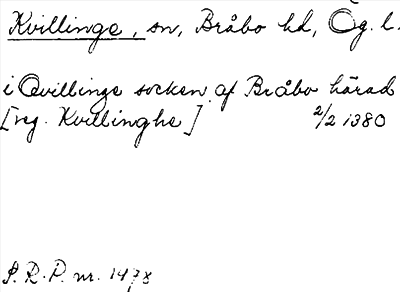 Kvillinge, sn, Bråbo hd, Ög. l.
i Qvillinge socken af Bråbo härad
[reg. Kvillinghe] 2/2 1380
S. R. P. nr. 1478